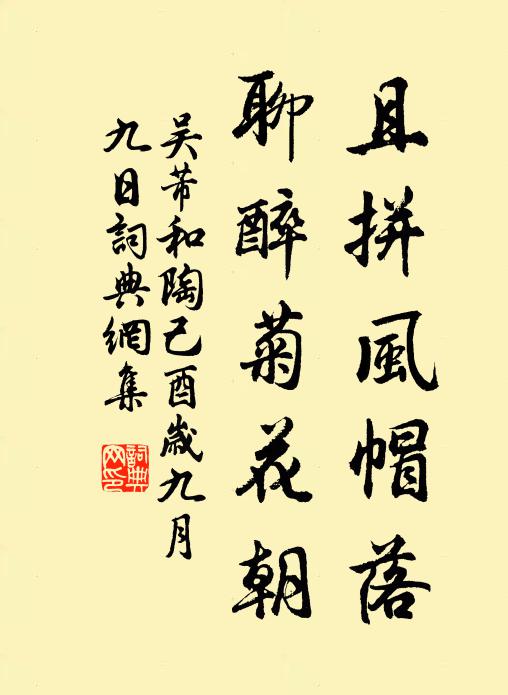 且拼風帽落
聊醉菊花朝
吴芾和陶己酉歲九月
九日詞典網集
詞典
网印